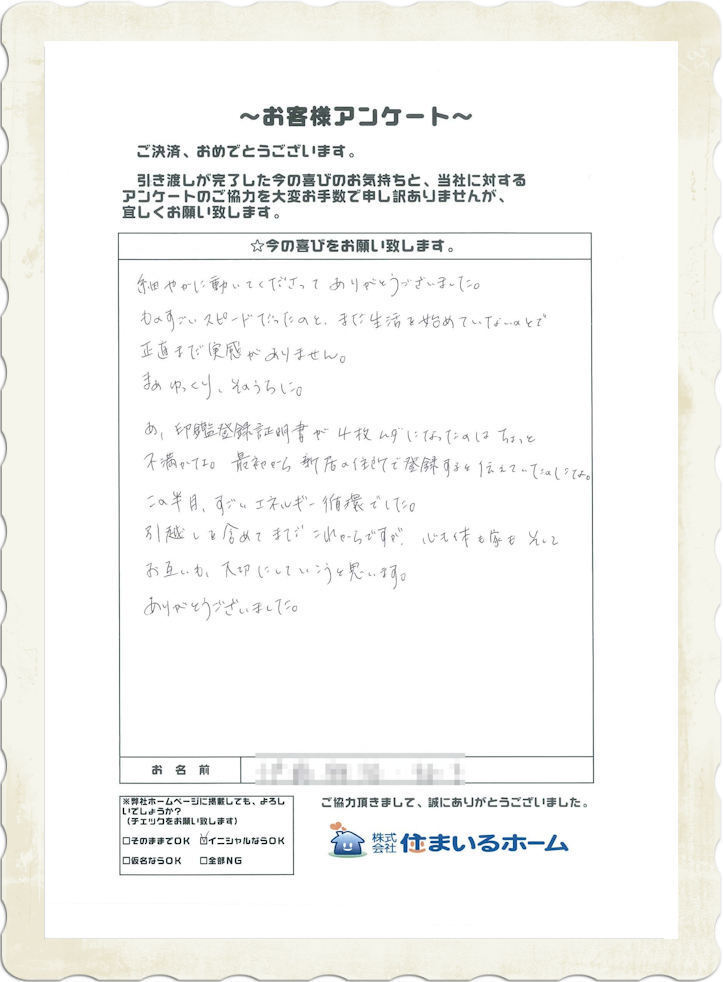 ～お客様アンケート～
ご決済、おめでとうございます。
引き渡しが完了した今の喜びのお気持ちと、当社に対する
アンケートのご協力を大変お手数で申し訳ありませんが、
宜しくお願い致します。
☆今の喜びをお願い致します。
細やかに動いてくださって ありがとうございました。
ものすごいスピードだったのと、まだ生活を始めていないので
正直まだ実感がありません。
まぁ ゆっくり、そのうちに。
あ、印鑑登録証明書が 4枚 ムダになったのは ちょっと
不満かな。 最初から 新居の住所で登録すると伝えていたのにな。
この半月、すごい エネルギー循環でした。
引越しも含めて まだ これからですが、心も体も家も そして
お互いも、大切にしていこうと思います。
ありがとうございました。
お名前
※弊社ホームページに掲載しても、よろし
いでしょうか？
（チェックをお願い致します）
□そのままでOK ☑イニシャルならOK
□仮名ならOK □全部NG
ご協力頂きまして、誠にありがとうございました。
株式会社 住まいるホーム